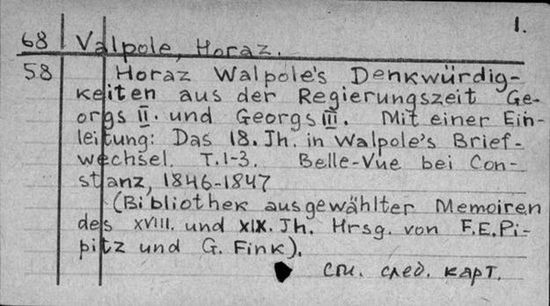 1.
68 Valpole, Horaz.
58 Horaz Walpole's Denkwürdig-
keiten aus der Regierungszeit Ge-
orgs II. und Georgs III. Mit einer Ein-
leitung: Das 18. Jh. in Walpole's Brief-
wechsel. T.1-3. Belle-Vue bei Con-
stanz, 1846-1847
(Bibliothek ausgewählter Memoiren
des XVIII. und XIX. Jh. Hrsg. von F.E.Pi-
pitz und G. Fink).
см. след. карт.